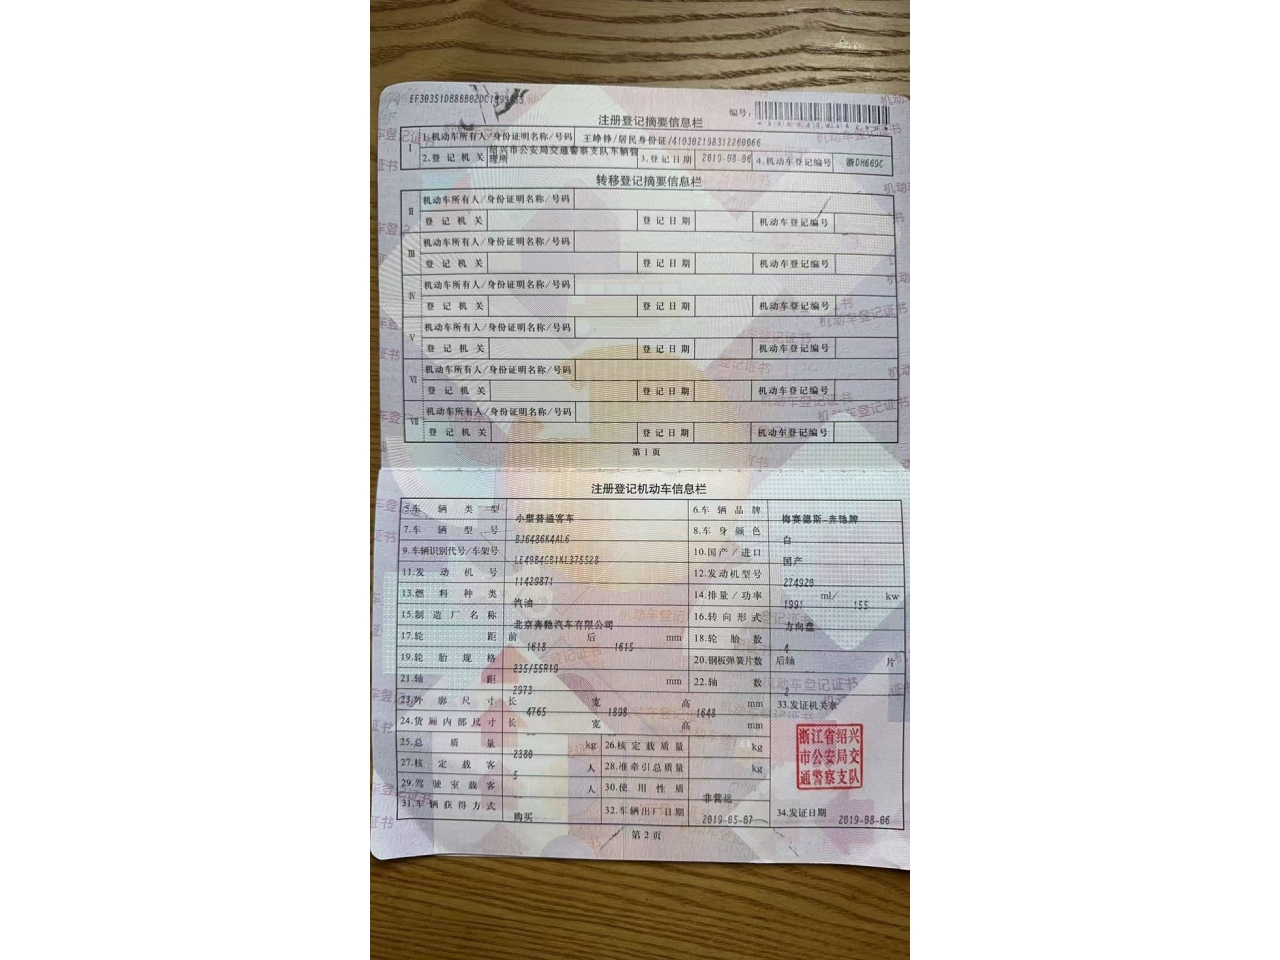 EF30351DB8BB02DC1899
编号:
注册登记摘要信息栏
I 1.机动车所有人/身份证明名称/号码 王峥铮/居民身份证/410302198312260066
2.登记机关 绍兴市公安局交通警察支队车辆管理所 3.登记日期 2019-08-06 4.机动车登记编号 浙DH669C
转移登记摘要信息栏
II 机动车所有人/身份证明名称/号码
登记机关 登记日期 机动车登记编号
III 机动车所有人/身份证明名称/号码
登记机关 登记日期 机动车登记编号
IV 机动车所有人/身份证明名称/号码
登记机关 登记日期 机动车登记编号
V 机动车所有人/身份证明名称/号码
登记机关 登记日期 机动车登记编号
VI 机动车所有人/身份证明名称/号码
登记机关 登记日期 机动车登记编号
VII 机动车所有人/身份证明名称/号码
登记机关 登记日期 机动车登记编号
第1页
注册登记机动车信息栏
5.车辆类型 小型普通客车 6.车辆品牌 梅赛德斯-奔驰牌
7.车辆型号 BJ6486K4AL6 8.车身颜色 白
9.车辆识别代号/车架号 LE40B4GB1KL375528 10.国产/进口 国产
11.发动机号 11429871 12.发动机型号 274920
13.燃料种类 汽油 14.排量/功率 1991 ml/ 155 kw
15.制造厂名称 北京奔驰汽车有限公司 16.转向形式 方向盘
17.轮距 前 1618 后 1615 mm 18.轮胎数 4
19.轮胎规格 235/55R19 20.钢板弹簧片数 后轴 片
21.轴距 2973 mm 22.轴数 2
23.外廓尺寸 长 4765 宽 1898 高 1648 mm 33.发证机关章
24.货厢内部尺寸 长 宽 高 mm
浙江省绍兴市公安局交通警察支队
25.总质量 2380 kg 26.核定载质量 kg
27.核定载客 5 人 28.准牵引总质量 kg
29.驾驶室载客 人 30.使用性质 非营运
31.车辆获得方式 购买 32.车辆出厂日期 2019-05-07 34.发证日期 2019-08-06
第2页